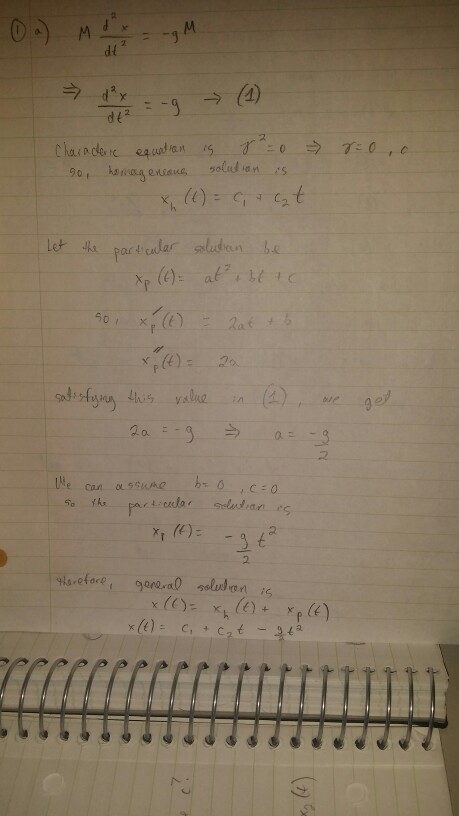 ① a) M d²x/dt² = -g M
⇒ d²x/dt² = -g → (1)
Characteric equation is r² = 0 ⇒ r = 0, 0
so, homogeneous solution is
x_h (t) = c₁ + c₂ t
Let the particular solution be
x_p (t) = at² + bt + c
so, x_p′(t) = 2at + b
x_p″(t) = 2a
satisfying this value in (1), we get
2a = -g ⇒ a = -g/2
We can assume b = 0, c = 0
so the particular solution is
x_p (t) = -g/2 t²
therefore, general solution is
x(t) = x_h (t) + x_p (t)
x(t) = c₁ + c₂ t - g/2 t²